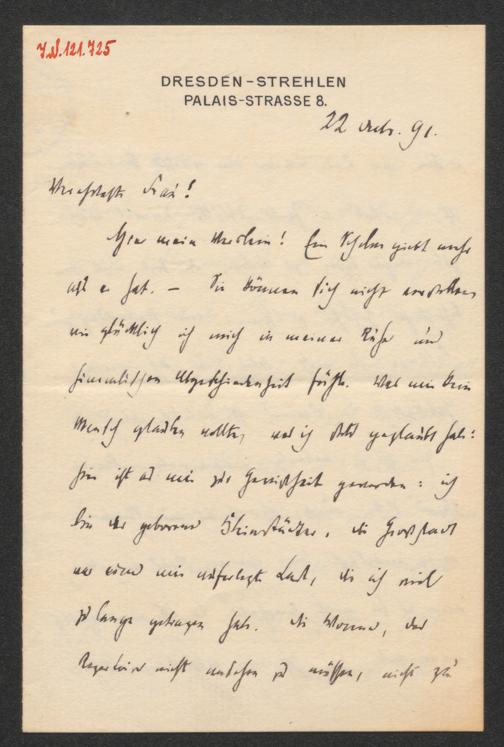 J.N. 121.725
DRESDEN-STREHLEN
PALAIS-STRASSE 8.
22 Octr. 91.
Verehrteste Frau!
Hier mein Verslein! Ein Schelm giebt mehr
als er hat. — Sie können sich nicht vorstellen
wie glücklich ich mich in meiner Ruhe und
himmlischen Abgeschiedenheit fühle. Was mir kein
Mensch glauben wollte, was ich stets geglaubt habe:
hier ist es mir zur Gewißheit geworden: ich
bin der geborene Kleinstädter, die Großstadt
war eine mir auferlegte Last, die ich viel
zu lange getragen habe. Die Wonne, das
Repertoire nicht ansehen zu müssen, nicht zu